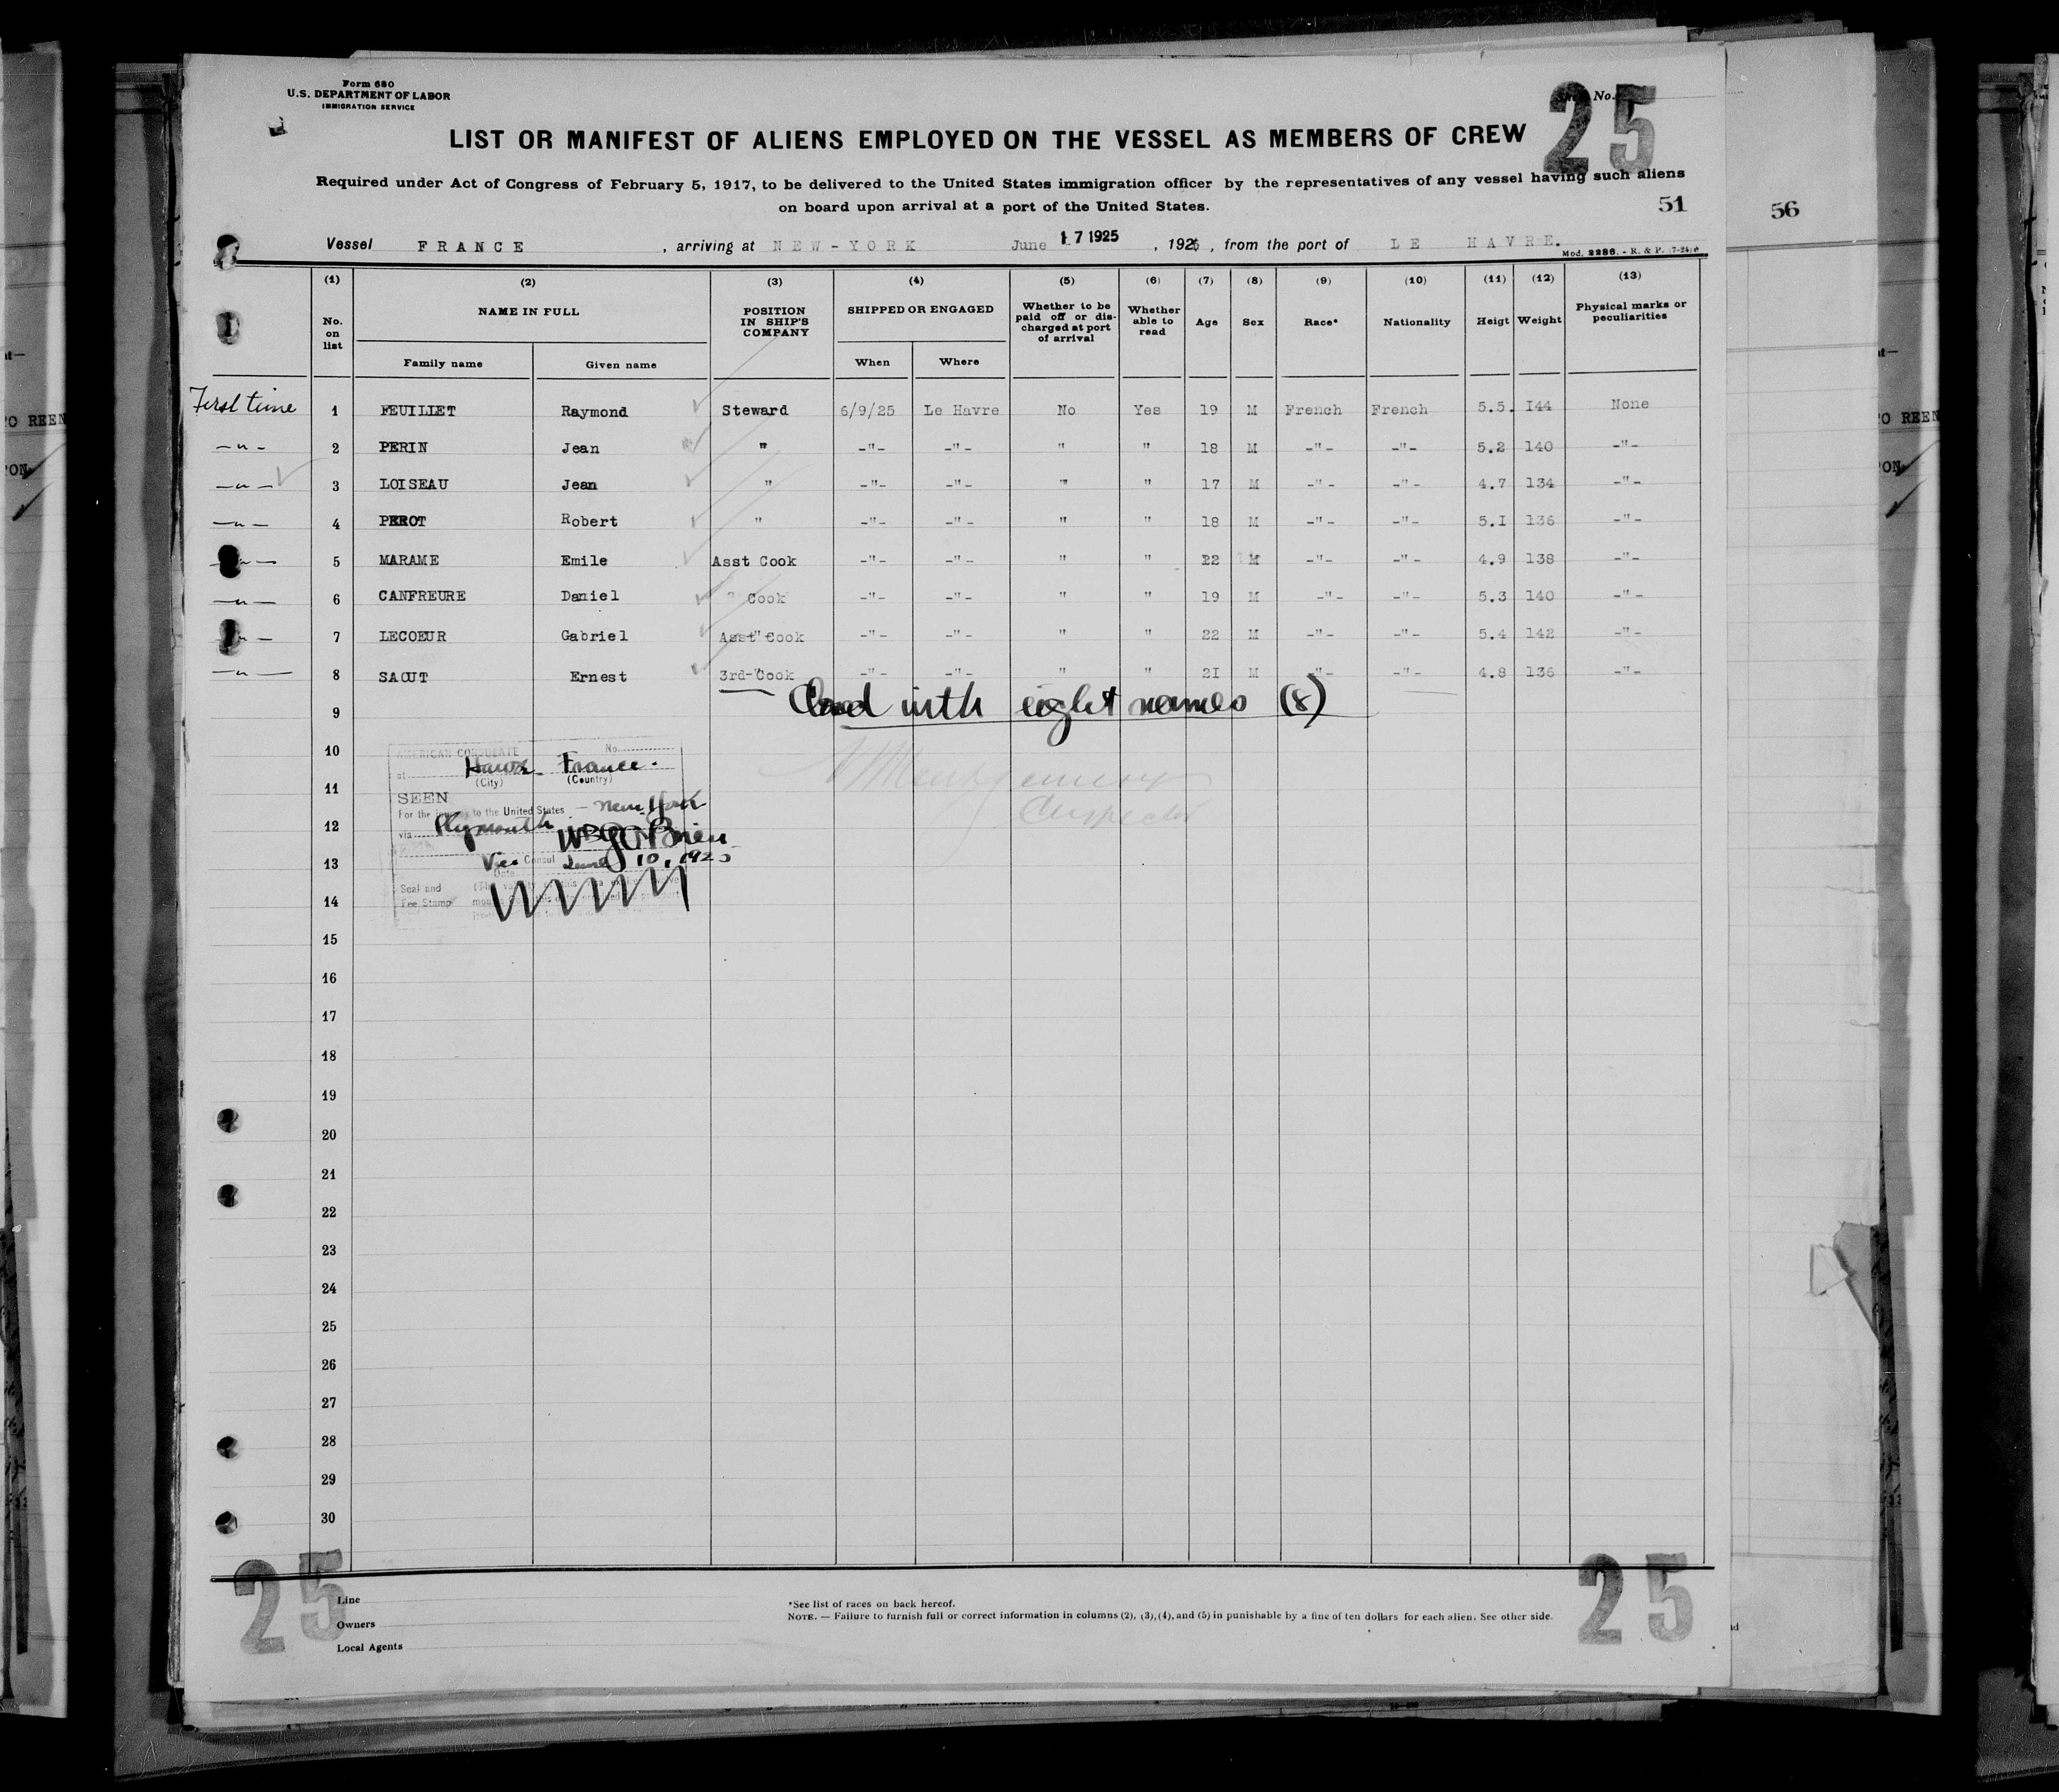 Form 680
U.S. DEPARTMENT OF LABOR
IMMIGRATION SERVICE
No.
25
LIST OR MANIFEST OF ALIENS EMPLOYED ON THE VESSEL AS MEMBERS OF CREW
Required under Act of Congress of February 5, 1917, to be delivered to the United States immigration officer by the representatives of any vessel having such aliens
on board upon arrival at a port of the United States.
51
56
Vessel FRANCE , arriving at NEW-YORK June 17 1925 , 192 , from the port of LE HAVRE.
Mod. 2286. - R. & P. (7-24)
(1) (2) (3) (4) (5) (6) (7) (8) (9) (10) (11) (12) (13)
No. on list NAME IN FULL POSITION IN SHIP'S COMPANY SHIPPED OR ENGAGED Whether to be paid off or discharged at port of arrival Whether able to read Age Sex Race* Nationality Heigt Weight Physical marks or peculiarities
Family name Given name When Where
First time 1 FEUILLET Raymond Steward 6/9/25 Le Havre No Yes 19 M French French 5.5. I44 None
-"- 2 PERIN Jean " -"- -"- " " 18 M -"- -"- 5.2 140 -"-
-"- 3 LOISEAU Jean " -"- -"- " " 17 M -"- -"- 4.7 134 -"-
-"- 4 PEROT Robert " -"- -"- " " 18 M -"- -"- 5.I 136 -"-
5 MARAME Emile Asst Cook -"- -"- " " 22 M -"- -"- 4.9 138 -"-
-"- 6 CANFREURE Daniel Cook -"- -"- " " 19 M -"- -"- 5.3 140 -"-
7 LECOEUR Gabriel Asst Cook -"- -"- " " 22 M -"- -"- 5.4 142 -"-
-"- 8 SAOUT Ernest 3rd-Cook -"- -"- " " 2I M -"- -"- 4.8 136 -"-
Closed with eight names (8)
9
10
11
12
13
14
15
16
17
18
19
20
21
22
23
24
25
26
27
28
29
30
AMERICAN CONSULATE No.
at Havre France.
(City) (Country)
SEEN
For the journey to the United States - New York
via Plymouth
W O'Brien
Vice Consul June 10, 1925
Date
Seal and
Fee Stamp
Montgomery
Inspector
25
25
Line
Owners
Local Agents
*See list of races on back hereof.
NOTE. — Failure to furnish full or correct information in columns (2), (3), (4), and (5) in punishable by a fine of ten dollars for each alien. See other side.
TO REEN
TO REEN